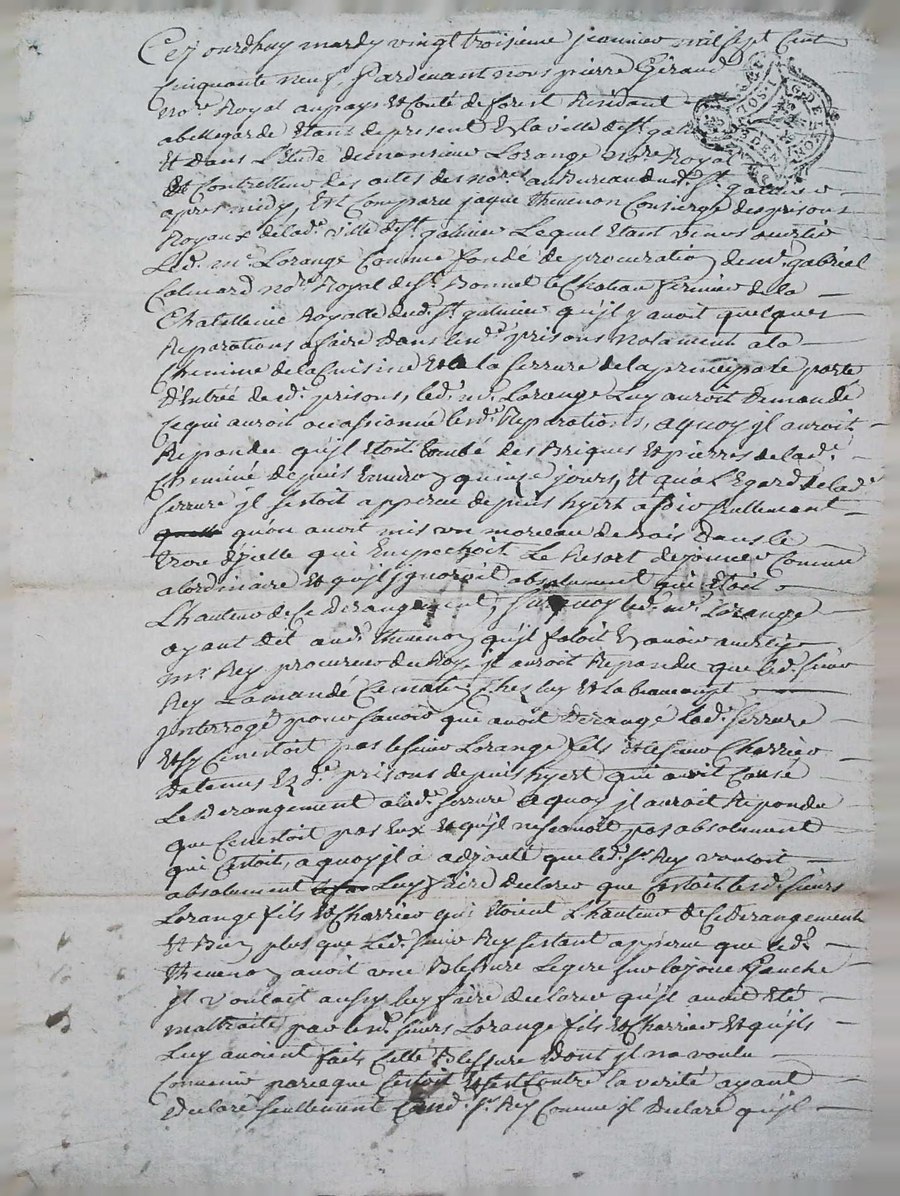 Cejourdhuy mardy vingt troisieme janvier mil sept cent
Cinquante neuf Pardevant nous pierre Géraud
No.re Royal au pays et Conté de forest Residant
a bellegarde Etans de present En la ville de St galmier
Et dans L'Etude de monsieur Lorange No.re Royal
Et Contrelleur des actes des no.res au Bureau dud. St galmier
apres midy, Est Comparu jaque thevenon Consierge des prisons
Royaux de lad. ville de St galmier Lequel Etant venus
Led. m.e Lorange Comme fondé de procuration de m.e gabriel
Calmard no.re Royal de St Bonnet le Chateau fermier de la
Chatellenie Royalle dud. St galmier qu'il y avoit quelques
Reparations a faire dans lesd. prisons notament a la
Cheminé de la Cuisine Et a la serrure de la principale porte
d'Entrée desd. prisons, led. m.e Lorange Luy auroit demandé
ce qui auroit occasionné lesd. Reparations, a quoy jl auroit
Repondu qu'il Etoit tombé des Briques Et pierres de lad.
Cheminé depuis Environ quinze jours, Et qu'a L'Egard de lad.
serrure jl s'estoit apperçu depuis hyert a soir seullement
qu'on avoit mis un morceau de bois dans le
trou d'jcelle qui Empechoit Le Resort de jouer Comme
a lordinaire Et qu'il jgnoroit absolument qui Etoit
L'hauteur de Ce derangement, sur quoy led. m.e Lorange
ayant dit aud. thevenon qu'il faloit En avoir
m.r Rey procureur du Roy, jl auroit Repondu que led. sieur
Rey La mandé Ce matin Chez luy Et la
jnterrogé pour savoir que avoit derangé lad. serrure
Et sy Ce n'estoit pas le sieur Lorange fils Et le sieur Charrier
detenus Esd. prisons depuis hyert qui avoit Causé
Le derangement a lad. serrure a quoy jl auroit Repondu
que Ce n'estoit pas Eux Et qu'il ne sçavoit pas absolument
qui C'estoit, a quoy jl a adjouté que led. Sr Rey vouloit
absolument Luy faire declarer que C'estoit lesd. sieurs
Lorange fils Et Charrier qui Etoient L'hauteur de Ce derangement
Et Bien plus que Led. sieur Rey s'estant apperçu que led.
thevenon avoit une Blessure Legere sur la joue Gauche
jl vouloit aussy luy faire declarer qu'il avoit Eté
maltraité par lesd. sieurs Lorange fils Et Charrier Et qu'ils
Luy avoient faits Cette Blessure dont jl na voulu
Convenir parce que C'estoit Et Est Contre la verité ayant
declaré seullement aud. Sr Rey Comme jl declare qu'il